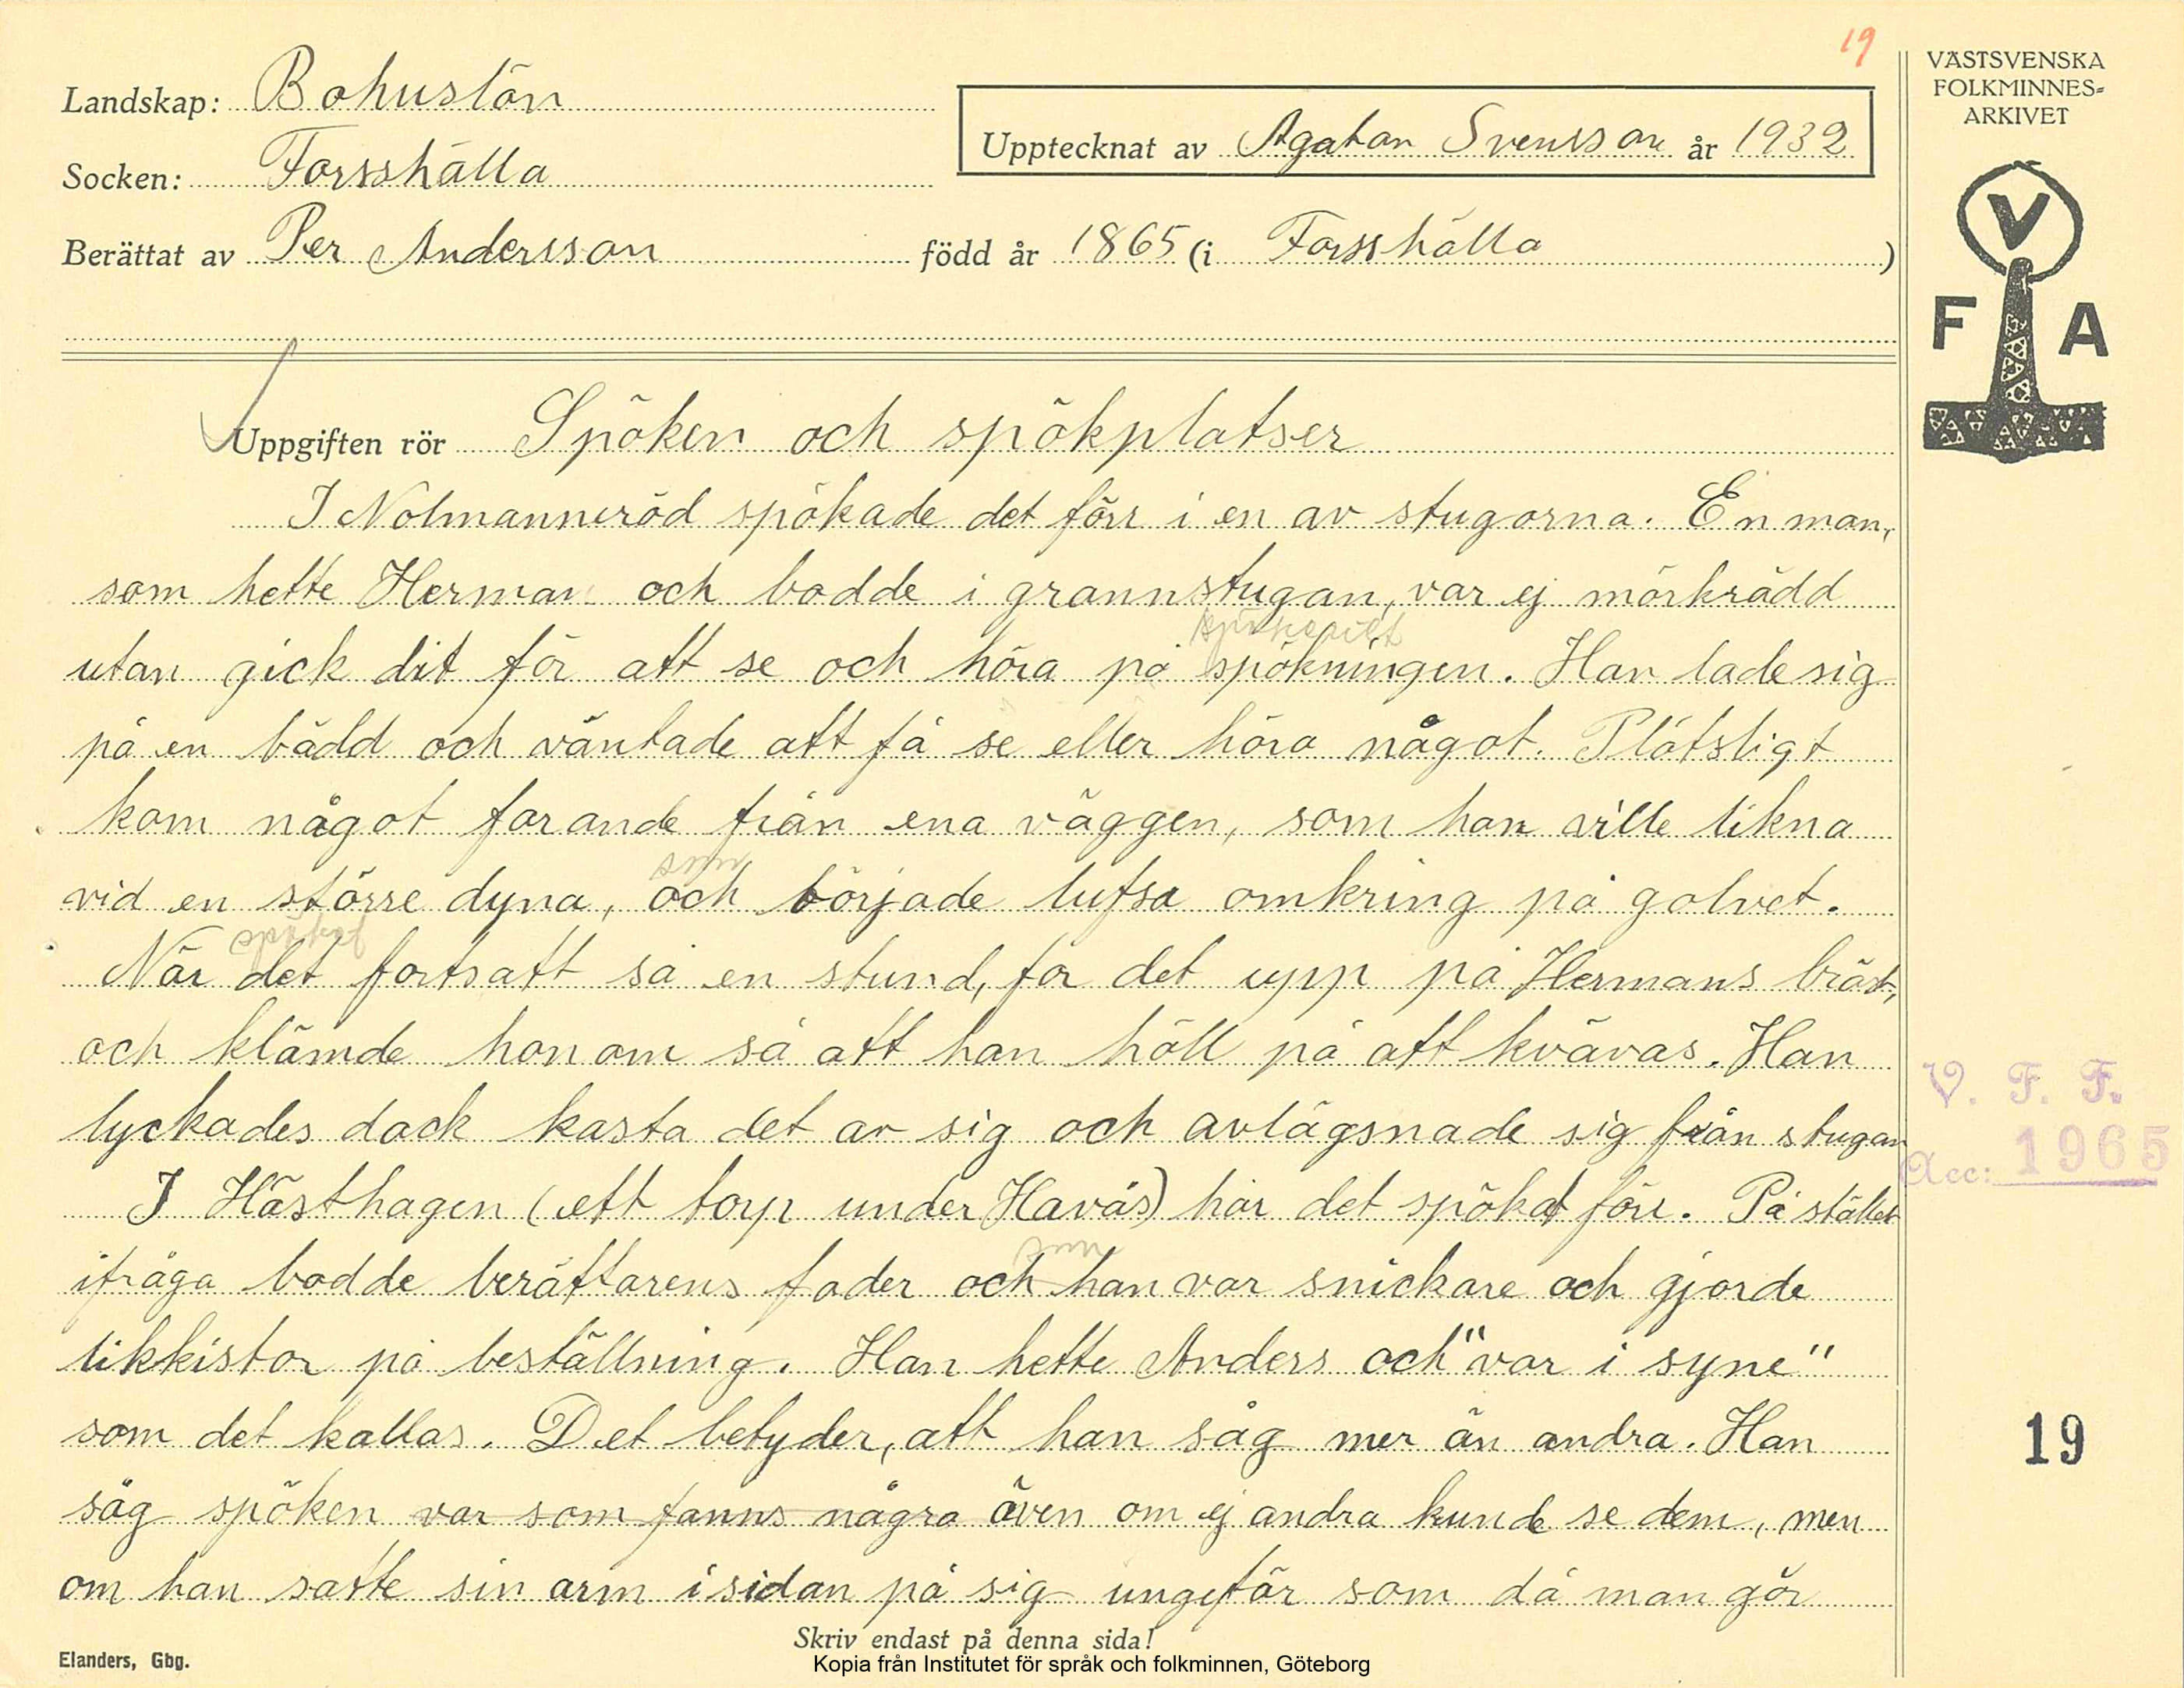 19
VÄSTSVENSKA
FOLKMINNES-
ARKIVET
Landskap: Bohuslän
Upptecknat av Agatan Svensson år 1932
Socken: Forsshälla
Berättat av Per Andersson född år 1865 (i Forsshälla)
V
F A
Uppgiften rör Spöken och spökplatser
I Nolmanneröd spökade det förr i en av stugorna. En man,
som hette Herman och bodde i grannstugan, var ej mörkrädd
spökeriet
utan gick dit för att se och höra på spökningen. Han lade sig
på en bädd och väntade att få se eller höra något. Plötsligt
kom något farande från ena väggen, som han ville likna
som
vid en större dyna, och började lufsa omkring på golvet.
spöket
När det fortsatt så en stund, for det upp på Hermans bröst,
och klämde honom så att han höll på att kvävas. Han
lyckades dock kasta det av sig och avlägsnade sig från stugan
V. F. F.
Acc: 1965
I Hästhagen (ett torp under Havås) har det spökat förr. På stället
som
ifråga bodde berättarens fader och han var snickare och gjorde
likkistor på beställning. Han hette Anders och "var i syne"
som det kallas. Det betyder, att han såg mer än andra. Han
19
såg spöken var som fanns några även om ej andra kunde se dem, men
om han satte sin arm i sidan på sig ungefär som då man gör
Skriv endast på denna sida!
Elanders, Gbg.
Kopia från Institutet för språk och folkminnen, Göteborg